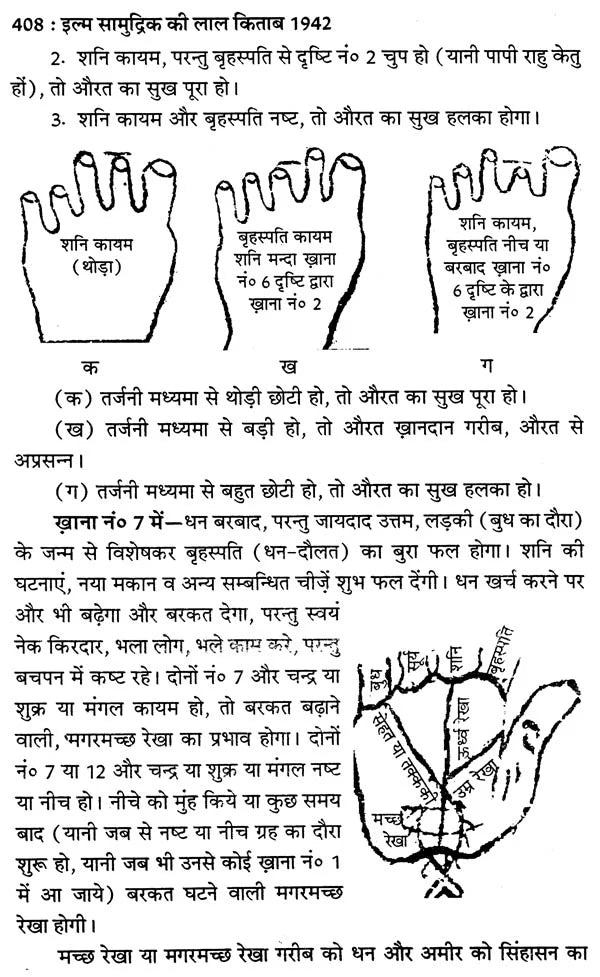 408 : इल्म सामुद्रिक की लाल किताब 1942
2. शनि कायम, परन्तु बृहस्पति से दृष्टि नं० 2 चुप हो (यानी पापी राहु केतु
हों), तो औरत का सुख पूरा हो।
3. शनि कायम और बृहस्पति नष्ट, तो औरत का सुख हलका होगा।
शनि कायम
(थोड़ा)
बृहस्पति कायम
शनि मन्दा ख़ाना
नं० 6 दृष्टि द्वारा
ख़ाना नं० 2
शनि कायम,
बृहस्पति नीच या
बरबाद ख़ाना नं०
6 दृष्टि के द्वारा
ख़ाना नं० 2
क
ख
ग
(क) तर्जनी मध्यमा से थोड़ी छोटी हो, तो औरत का सुख पूरा हो।
(ख) तर्जनी मध्यमा से बड़ी हो, तो औरत ख़ानदान गरीब, औरत से
अप्रसन्न।
(ग) तर्जनी मध्यमा से बहुत छोटी हो, तो औरत का सुख हलका हो।
ख़ाना नं० 7 में—धन बरबाद, परन्तु जायदाद उत्तम, लड़की (बुध का दौरा)
के जन्म से विशेषकर बृहस्पति (धन-दौलत) का बुरा फल होगा। शनि की
घटनाएं, नया मकान व अन्य सम्बन्धित चीज़ें शुभ फल देंगी। धन खर्च करने पर
और भी बढ़ेगा और बरकत देगा, परन्तु स्वयं
नेक किरदार, भला लोग, भले काम करे, परन्तु
बचपन में कष्ट रहे। दोनों नं० 7 और चन्द्र या
शुक्र या मंगल कायम हो, तो बरकत बढ़ाने
वाली, मगरमच्छ रेखा का प्रभाव होगा। दोनों
नं० 7 या 12 और चन्द्र या शुक्र या मंगल नष्ट
या नीच हो। नीचे को मुंह किये या कुछ समय
बाद (यानी जब से नष्ट या नीच ग्रह का दौरा
शुरू हो, यानी जब भी उनसे कोई ख़ाना नं० 1
में आ जाये) बरकत घटने वाली मगरमच्छ
रेखा होगी।
बुध
सूर्य
शनि
बृहस्पति
सेहत या तक्की
ऊर्ध्व रेखा
उम्र रेखा
मच्छ
रेखा
मच्छ रेखा या मगरमच्छ रेखा गरीब को धन और अमीर को सिंहासन का